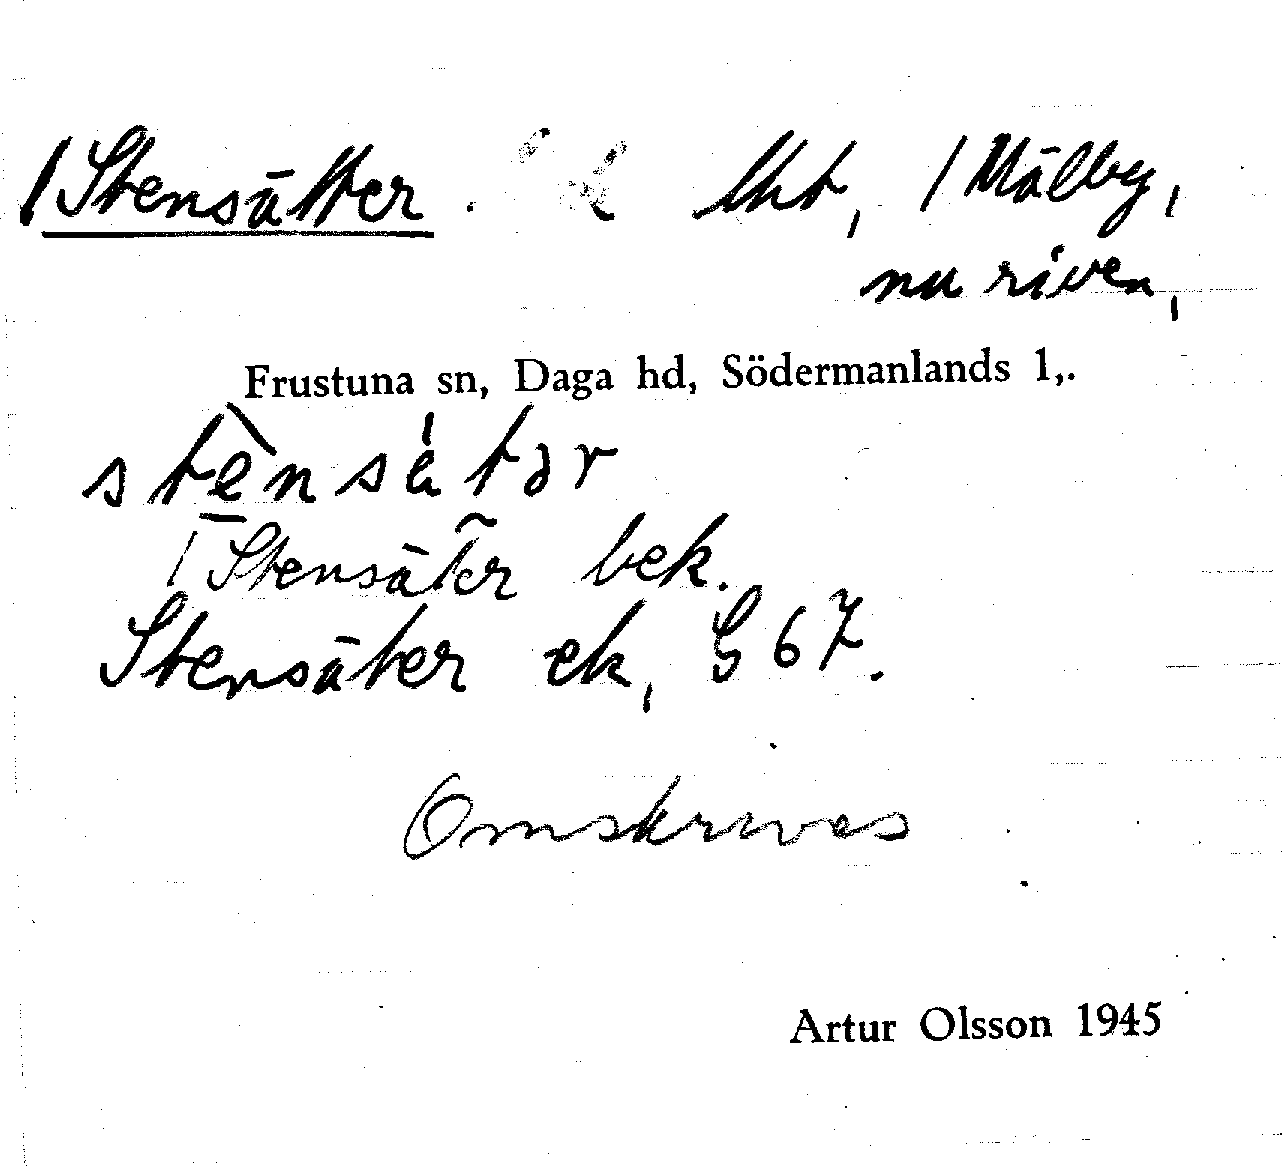 / Stensätter. lht, / Mälby,
nu riven,
Frustuna sn, Daga hd, Södermanlands l,.
stènsätər
/ Stensäter bek.
Stensäter ek, § 67.
Omskrives
Artur Olsson 1945